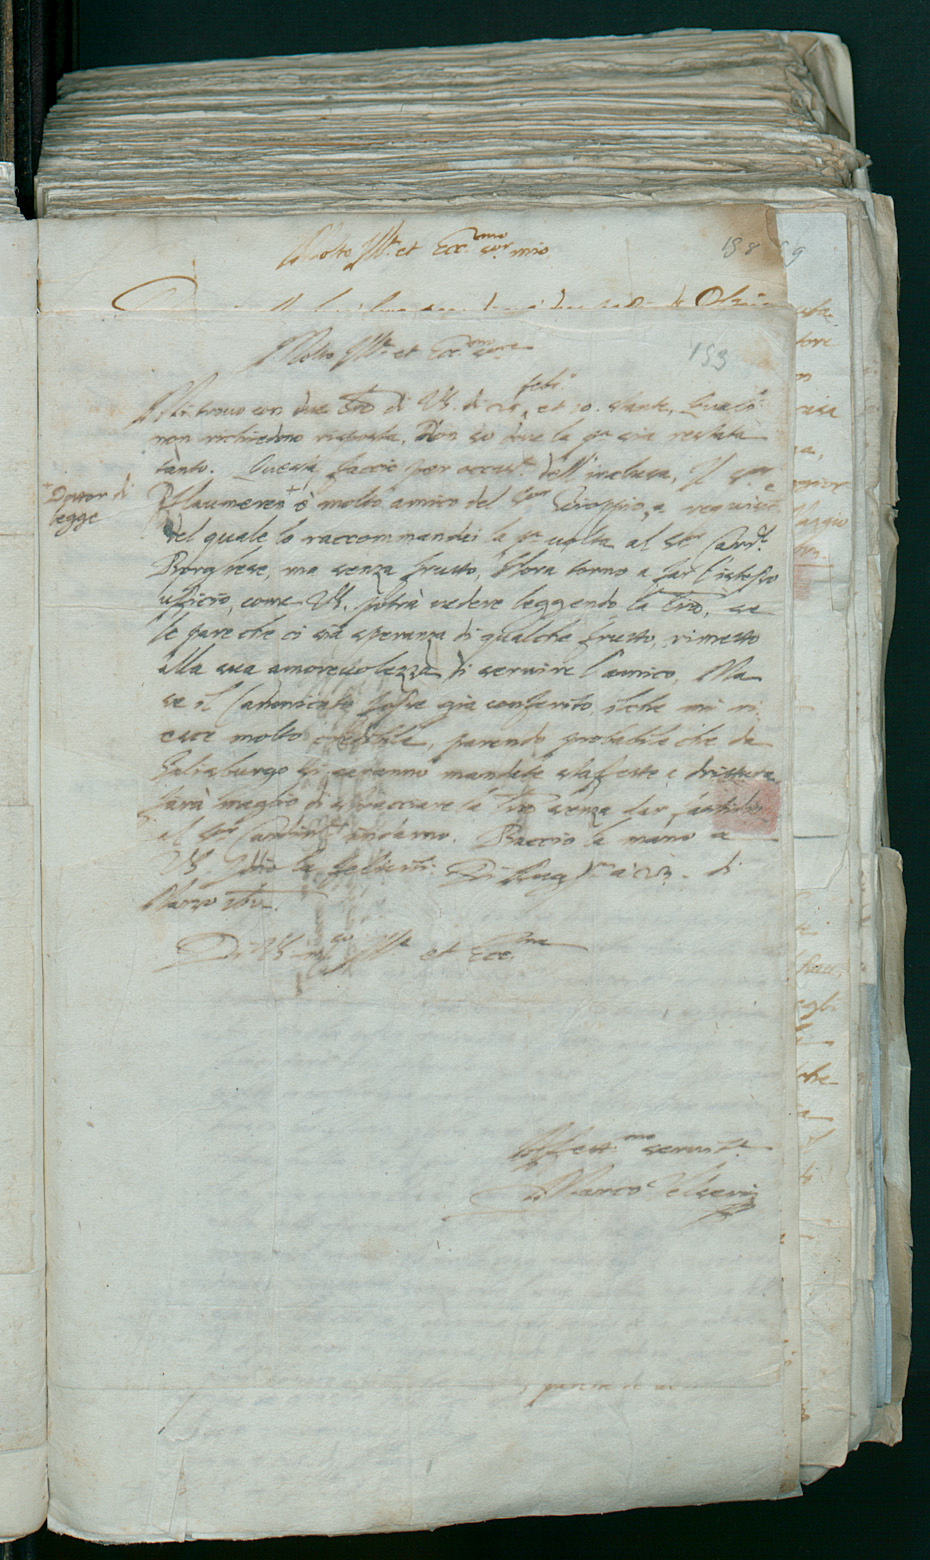 Molto Ill.re et Ecc.mo sor mio
158
Molto Ill.re et Ecc.mo
153
Mi trovo con due lre di VS. di 29. feb.o et 10. stante, quali
non richiedono risposta. Non so dove la p.a sia restata
tanto. Questa faccio per occas.e dell'inclusa. Il S.or
+ Dottor di
legge
Pflaumeren + è molto amico del S.or Scioppio, a requisit.e
del quale lo raccommandai la p.a volta al S.or Card.l
Borghese, ma senza frutto, Hora torno a far l'istesso
ufficio, come VS. potrà vedere leggendo la lra, se
le pare che ci sia speranza di qualche frutto, rimetto
alla sua amorevolezza di servire l'amico. Ma
se il Canonicato fosse gia conferito, il che mi ri
esce molto credibile, parendo probabile che da
Salisburgo si saranno mandate staffette a drittura
sarà meglio di stracciare la lra senza dar fastidio
al S.or Cardin.l indarno. Baccio la mano a
VS. Iddio la feliciti. Di Aug.ta a 23. di
Marzo
Di VS. molto Ill.re et Ecc.ma
Aff.mo servit.e
Marco Velseri